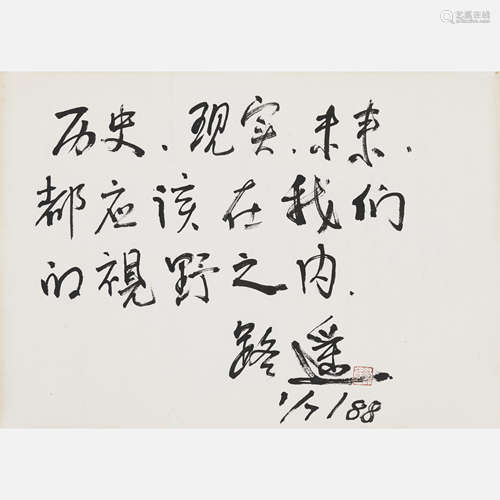 艺典在线
历史、现实、未来、
都应该在我们
的視野之内.
路遥
1/7/88